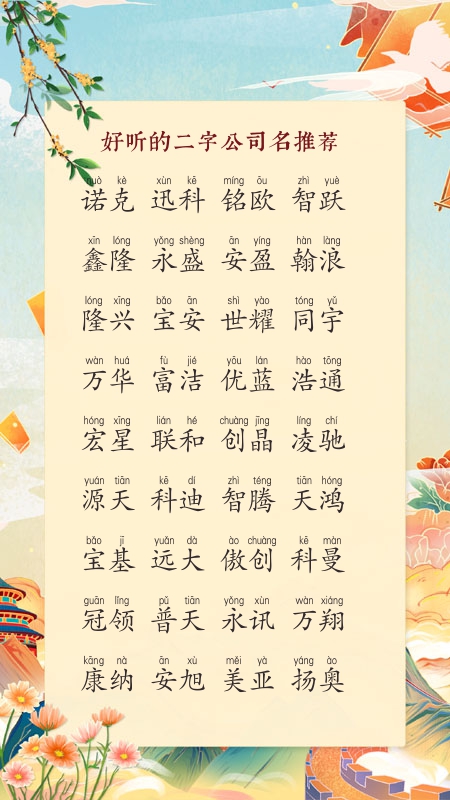 好听的二字公司名推荐
nuò kè xùn kē míng ōu zhì yuè
诺克 迅科 铭欧 智跃
xīn lóng yǒng shèng ān yíng hàn làng
鑫隆 永盛 安盈 翰浪
lóng xīng bǎo ān shì yào tóng yǔ
隆兴 宝安 世耀 同宇
wàn huá fù jié yōu lán hào tōng
万华 富洁 优蓝 浩通
hóng xīng lián hé chuàng jīng líng chí
宏星 联和 创晶 凌驰
yuán tiān kē dí zhì téng tiān hóng
源天 科迪 智腾 天鸿
bǎo jī yuǎn dà ào chuàng kē màn
宝基 远大 傲创 科曼
guān lǐng pǔ tiān yǒng xùn wàn xiáng
冠领 普天 永讯 万翔
kāng nà ān xù měi yà yáng ào
康纳 安旭 美亚 扬奥